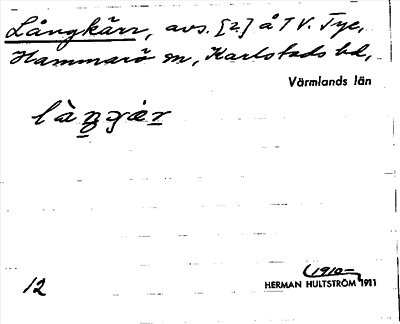 Långkärr, avs. [2] å TV. Tye,
Hammarö sn, Karlstads hd,
Värmlands län
12
(1910-
HERMAN HULTSTRÖM 1911